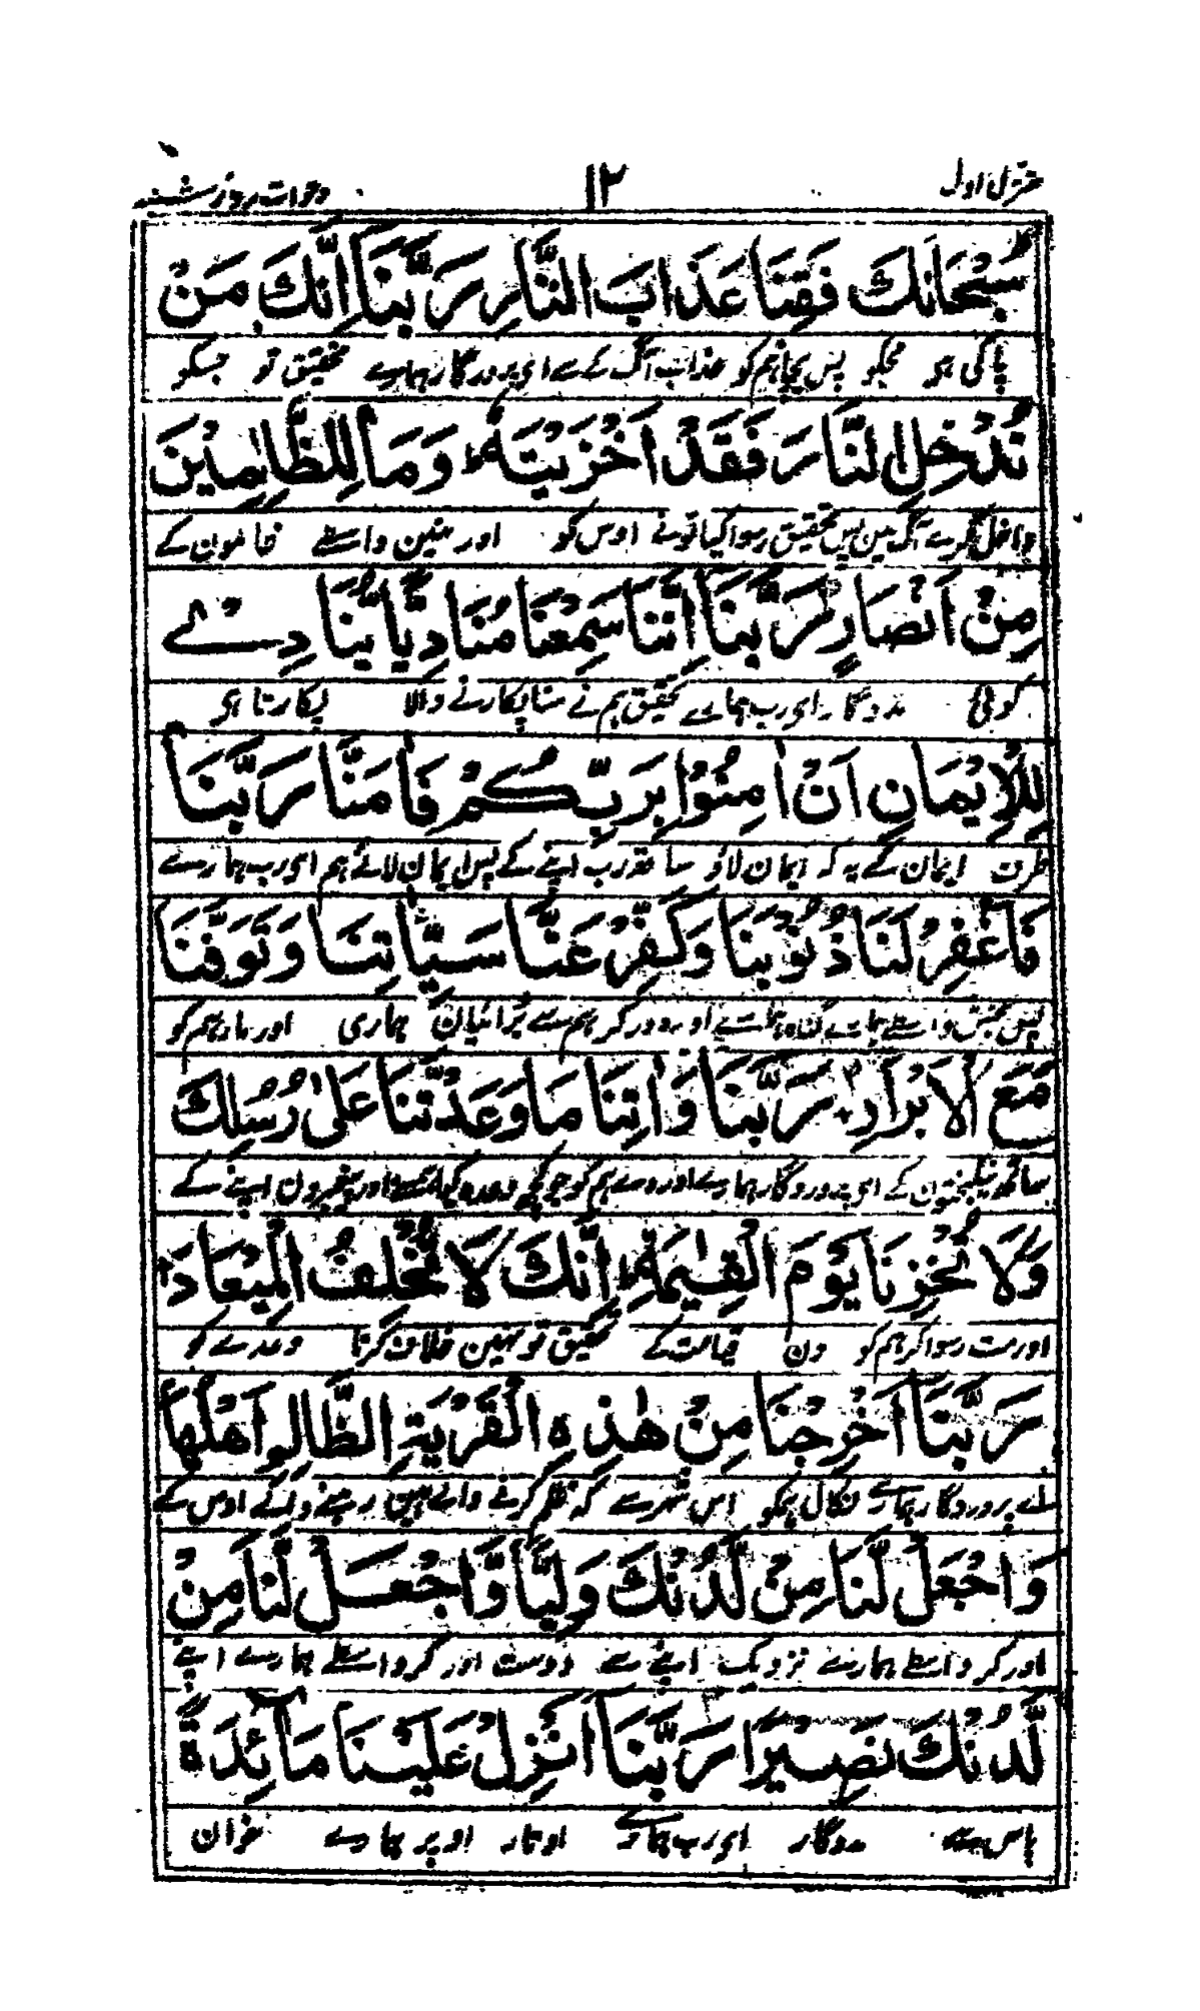 منزل اول ۱۲ دعوات روز شنبه
سُبْحَانَكَ فَقِنَا عَذَابَ النَّارِ رَبَّنَا اِنَّكَ مَنْ
پاکی ہو تجکو پس بچا ہمکو عذاب آگ کے سے ای پروردگار ہمارے تحقیق تو جسکو
تُدْخِلِ النَّارَ فَقَدْ اَخْزَيْتَهٗ وَمَا لِلظَّالِمِيْنَ
داخل کرے آگ مین پس تحقیق رسوا کیا تو نے اوس کو اور نہین واسطے ظالمون کے
مِنْ اَنْصَارٍ رَبَّنَا اِنَّنَا سَمِعْنَا مُنَادِيًا يُّنَادِيْ
کوئی مددگار ای رب ہمارے تحقیق ہم نے سنا پکارنے والا پکارتا ہی
لِلْاِيْمَانِ اَنْ اٰمِنُوْا بِرَبِّكُمْ فَاٰمَنَّا رَبَّنَا
طرف ایمان کے یہ کہ ایمان لاؤ ساتھ رب اپنے کے پس ایمان لائے ہم ای رب ہمارے
فَاغْفِرْ لَنَا ذُنُوْبَنَا وَكَفِّرْ عَنَّا سَيِّاٰتِنَا وَتَوَفَّنَا
پس بخش واسطے ہمارے گناہ ہمارے اور دور کر ہم سے برائیان ہماری اور مار ہم کو
مَعَ الْاَبْرَارِ رَبَّنَا وَاٰتِنَا مَا وَعَدْتَّنَا عَلٰى رُسُلِكَ
ساتھ نیکبختون کے ای پروردگار ہمارے اور دے ہم کو جو کچھ وعدہ کیا اوپر پیغمبرون اپنے کے
وَلَا تُخْزِنَا يَوْمَ الْقِيٰمَةِ اِنَّكَ لَا تُخْلِفُ الْمِيْعَادَ
اور مت رسوا کر ہم کو دن قیامت کے تحقیق تو نہین خلاف کرتا وعدے کو
رَبَّنَا اَخْرِجْنَا مِنْ هٰذِهِ الْقَرْيَةِ الظَّالِمِ اَهْلُهَا
اے پروردگار ہمارے نکال ہمکو اس شہر سے کہ ظلم کرنے والے ہین رہنے والے اوس کے
وَاجْعَلْ لَّنَا مِنْ لَّدُنْكَ وَلِيًّا وَّاجْعَلْ لَّنَا مِنْ
اور کر واسطے ہمارے نزدیک اپنے سے دوست اور کر واسطے ہمارے اپنے
لَّدُنْكَ نَصِيْرًا رَبَّنَا اَنْزِلْ عَلَيْنَا مَآئِدَةً
پاس سے مددگار ای رب ہمارے اوتار اوپر ہمارے خوان